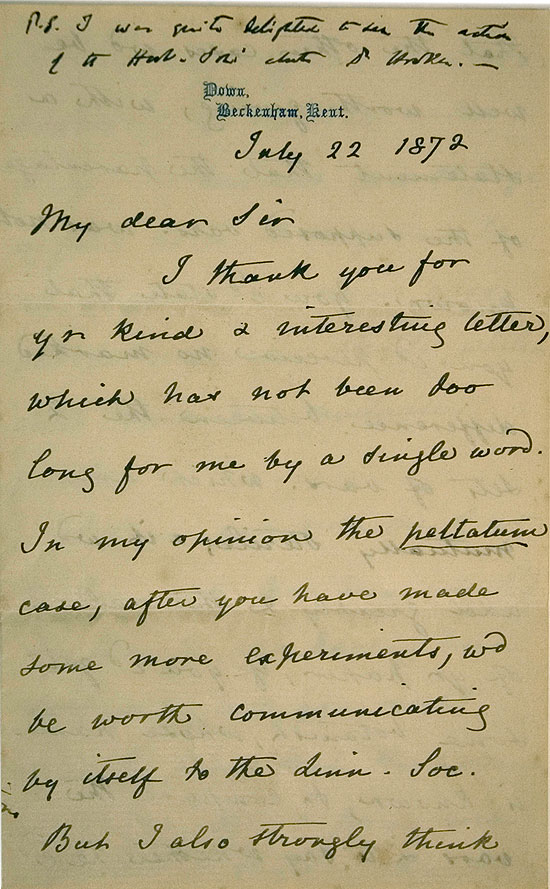 P.S. I was quite delighted to see the action
of the Hort. Soc. about Dr Hooker. —
Down,
Beckenham, Kent.
July 22 1872
My dear Sir
I thank you for
yr kind & interesting letter,
which has not been too
long for me by a single word.
In my opinion the peltatum
case, after you have made
some more experiments, wd
be worth communicating
by itself to the Linn. Soc.
But I also strongly think